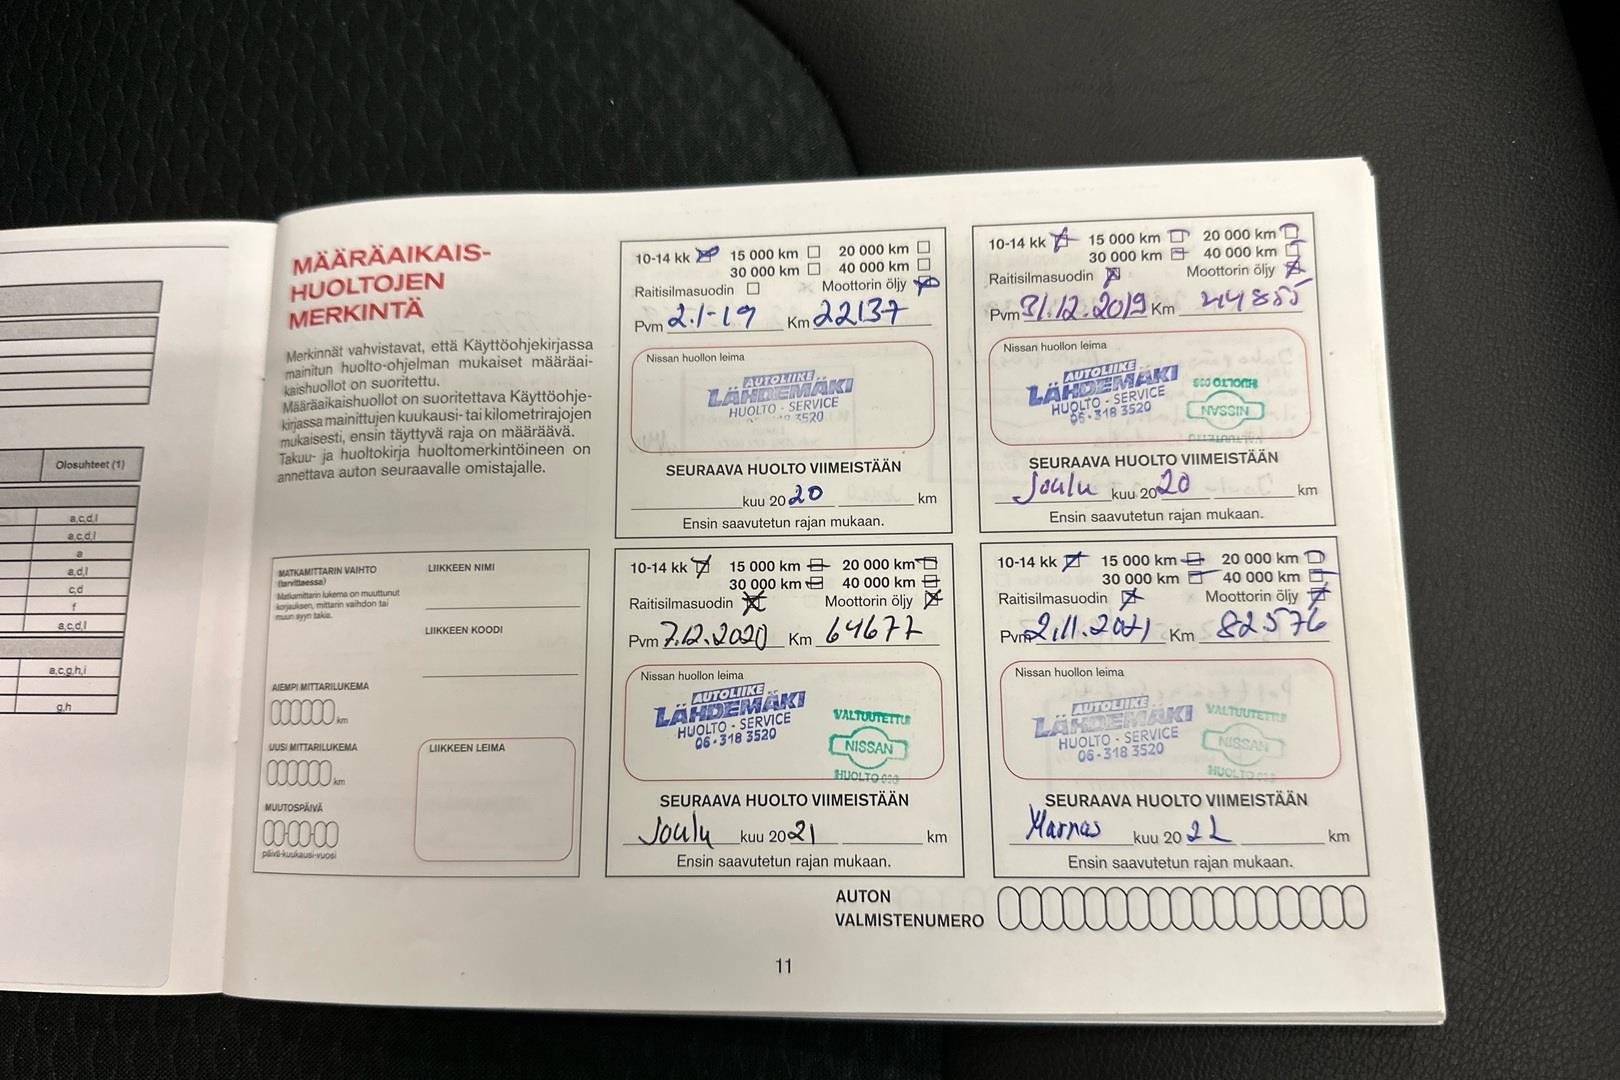 Olosuhteet (1)
a,c,d,l
a,c,d,l
a
a,d,l
c,d
f
a,c,d,l
a,c,g,h,i
g,h
MÄÄRÄAIKAIS-
HUOLTOJEN
MERKINTÄ
Merkinnät vahvistavat, että Käyttöohjekirjassa
mainitun huolto-ohjelman mukaiset määräai-
kaishuollot on suoritettu.
Määräaikaishuollot on suoritettava Käyttöohje-
kirjassa mainittujen kuukausi- tai kilometrirajojen
mukaisesti, ensin täyttyvä raja on määräävä.
Takuu- ja huoltokirja huoltomerkintöineen on
annettava auton seuraavalle omistajalle.
MATKAMITTARIN VAIHTO
(tarvittaessa)
Matkamittarin lukema on muuttunut
korjauksen, mittarin vaihdon tai
muun syyn takia.
LIIKKEEN NIMI
LIIKKEEN KOODI
AIEMPI MITTARILUKEMA
km
UUSI MITTARILUKEMA
km
MUUTOSPÄIVÄ
päivä-kuukausi-vuosi
LIIKKEEN LEIMA
10-14 kk 15 000 km 20 000 km
30 000 km 40 000 km
Raitisilmasuodin Moottorin öljy
Pvm 2.1-19 Km 22137
Nissan huollon leima
AUTOLIIKE
LÄHDEMÄKI
HUOLTO - SERVICE
3520
SEURAAVA HUOLTO VIIMEISTÄÄN
kuu 20 20 km
Ensin saavutetun rajan mukaan.
10-14 kk 15 000 km 20 000 km
30 000 km 40 000 km
Raitisilmasuodin Moottorin öljy
Pvm 31.12.2019 Km 44855
Nissan huollon leima
AUTOLIIKE
LÄHDEMÄKI
HUOLTO - SERVICE
06-318 3520
HUOLTO
NISSAN
VALTUUTETTU
SEURAAVA HUOLTO VIIMEISTÄÄN
Joulu kuu 20 20 km
Ensin saavutetun rajan mukaan.
10-14 kk 15 000 km 20 000 km
30 000 km 40 000 km
Raitisilmasuodin Moottorin öljy
Pvm 7.12.2020 Km 64677
Nissan huollon leima
AUTOLIIKE
LÄHDEMÄKI
HUOLTO - SERVICE
06-318 3520
VALTUUTETTU
NISSAN
HUOLTO
SEURAAVA HUOLTO VIIMEISTÄÄN
Joulu kuu 20 21 km
Ensin saavutetun rajan mukaan.
10-14 kk 15 000 km 20 000 km
30 000 km 40 000 km
Raitisilmasuodin Moottorin öljy
Pvm 2.11.2021 Km 82576
Nissan huollon leima
AUTOLIIKE
LÄHDEMÄKI
HUOLTO - SERVICE
06-318 3520
VALTUUTETTU
NISSAN
HUOLTO
SEURAAVA HUOLTO VIIMEISTÄÄN
Marras kuu 20 22 km
Ensin saavutetun rajan mukaan.
AUTON
VALMISTENUMERO
11